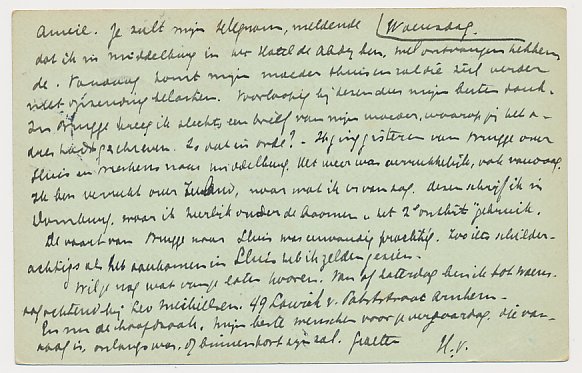 Annie. Je zult mijn telegram, meldende Woensdag.
dat ik in Middelburg in het Hotel de Abdij ben, wel ontvangen hebben
de. Vandaag komt mijn moeder thuis en zal die zich verder
met opzending belasten. Voorloopig bij dezen dus mijn besten dank.
In Brugge kreeg ik slechts een brief van mijn moeder, waarop jij het a-
dres had geschreven. Is dat in orde? - Ik ging gisteren van Brugge over
Sluis en Breskens naar Middelburg. Het weer was verrukkelijk, ook vandaag.
Ik ben verrukt over Zeeland, naar wat ik er van zag. dezen schrijf ik in
Domburg, waar ik heerlijk onder de boomen het 2e ontbijt gebruik.
De vaart van Brugge naar Sluis was eenvoudig prachtig. Zoo iets schilder-
achtigs als het aankomen in Sluis heb ik zelden gezien.
Wil je nog wat van je laten hooren. Van af Zaterdag ben ik tot Woens-
dagochtend bij Leo 49 Lawick v. Pabststraat Arnhem.
En nu de hoofdzaak. Mijn beste wenschen voor je verjaardag, die van-
daag is, onlangs was, of binnenkort zijn zal. Groeten H.v.